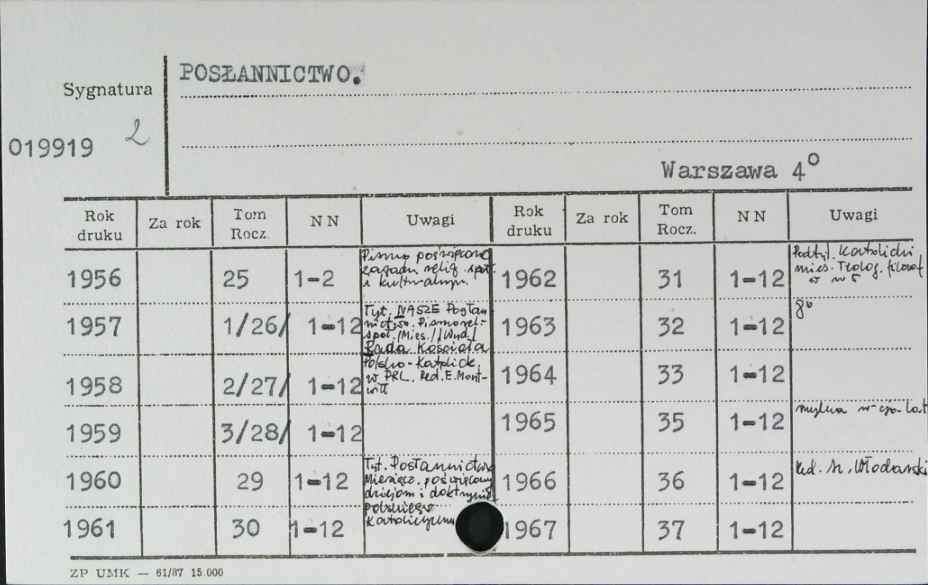 POSŁANNICTWO.
Sygnatura
019919 2
Warszawa 4°
Rok druku Za rok Tom Rocz. NN Uwagi Rok druku Za rok Tom Rocz. NN Uwagi
1956 25 1-2 Pismo poświęcone
zagadn. relig. społ.
i kulturalnym.
1962 31 1-12 Podtyt. Katolicki
mies. Teolog. filozof
1957 1/26/ 1-12 Tyt. NASZE Posłan
nictwo. Pismo rel.-
społ. /Mies./ /Wyd./
Rada Kościoła
Polsko-Katolick.
w PRL. Red. E. Mont-
wiłł
1963 32 1-12 8°
1958 2/27/ 1-12
1964 33 1-12
1959 3/28/ 1-12
1965 35 1-12
1960 29 1-12 Tyt. Posłannictwo
Miesięcz. poświęcony
dziejom i doktrynie
polskiego
Katolicyzmu
1966 36 1-12 Red. Włodarski
1961 30 1-12
1967 37 1-12
ZP UMK — 61/87 15.000